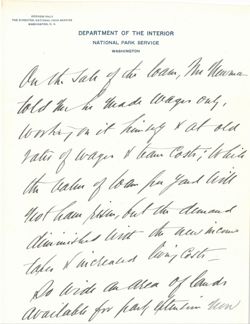 DEPARTMENT OF THE INTERIOR
NATIONAL PARK SERVICE
WASHINGTON
On the Sale of the loam, Mr Newman
told me he made wages only,
working on it himself & at old
rates of wages & team costs; While
the value of loam per yard will
not have risen, but the demand
diminished with the new income
taxes & increased living costs –
So wide an area of lands
available for park extension now